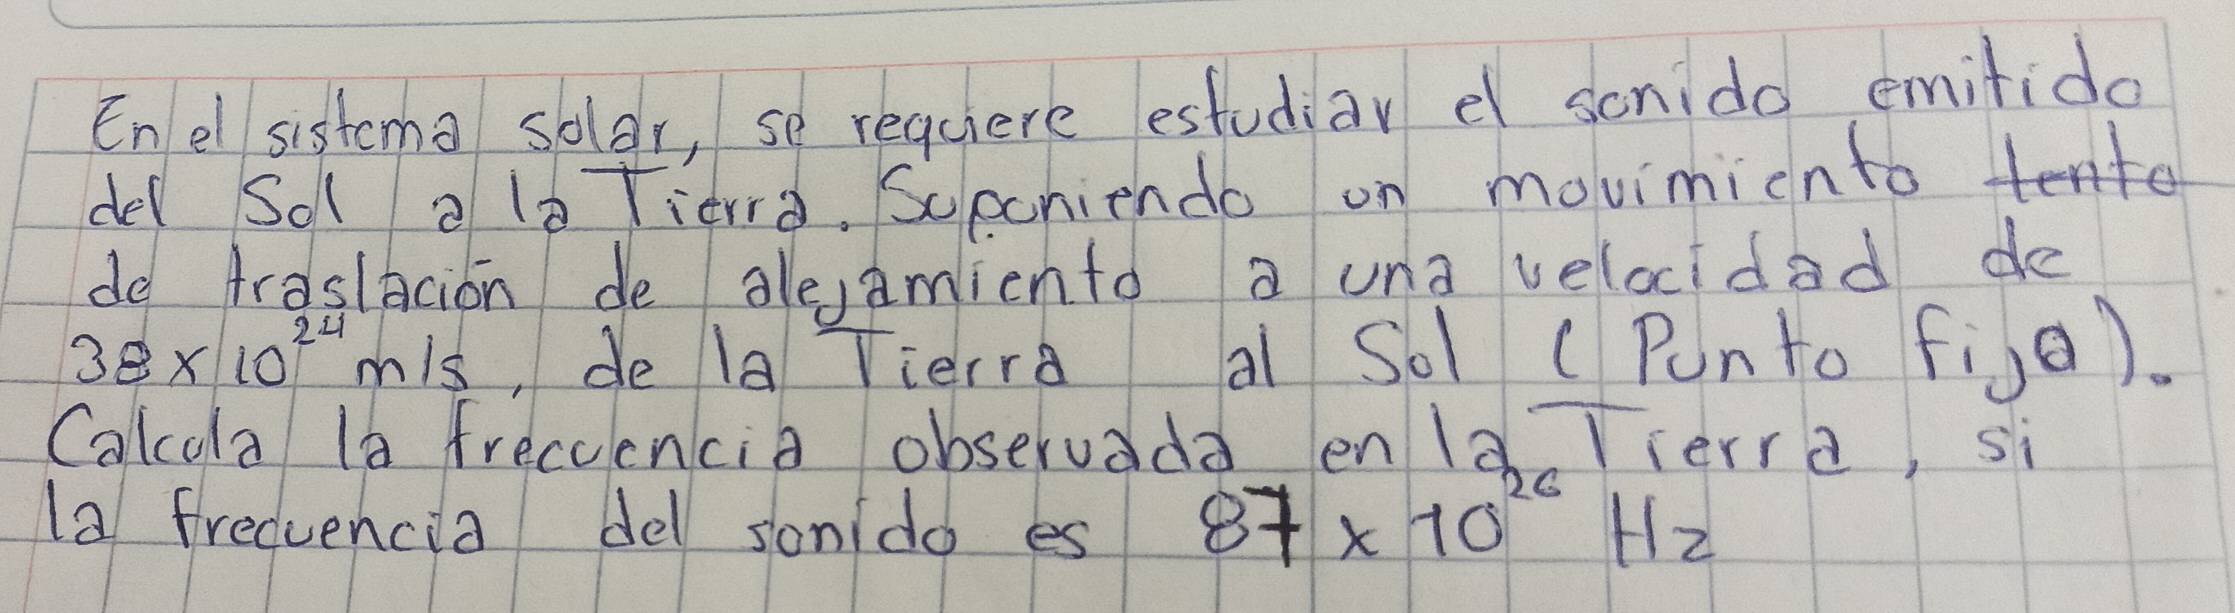 En el sistema solar, se requiere estudiar el sonido emitido
del Sol a la Tierra. Suponiendo un movimiento tento
de traslación de alejamiento a una velocidad de
38 x 10²⁴ m/s, de la Tierra al Sol (Punto fijo).
Calcula la frecuencia observada en la Tierra, si
la frecuencia del sonido es 87 x 10²⁶ Hz